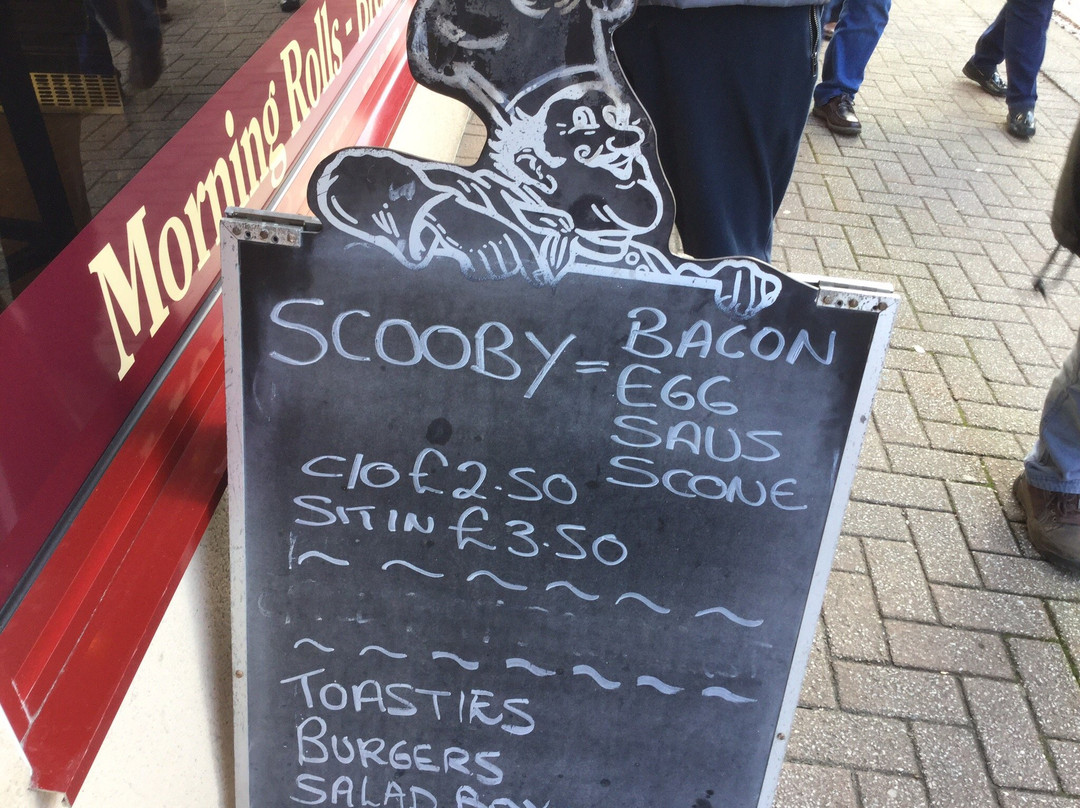 Morning Rolls -
SCOOBY = BACON
EGG
SAUS
SCONE
C/O £2.50
SIT IN £3.50
~ ~ ~ ~ ~ ~
~ ~ ~ ~ ~ ~ ~
TOASTIES
BURGERS
SALAD BOX